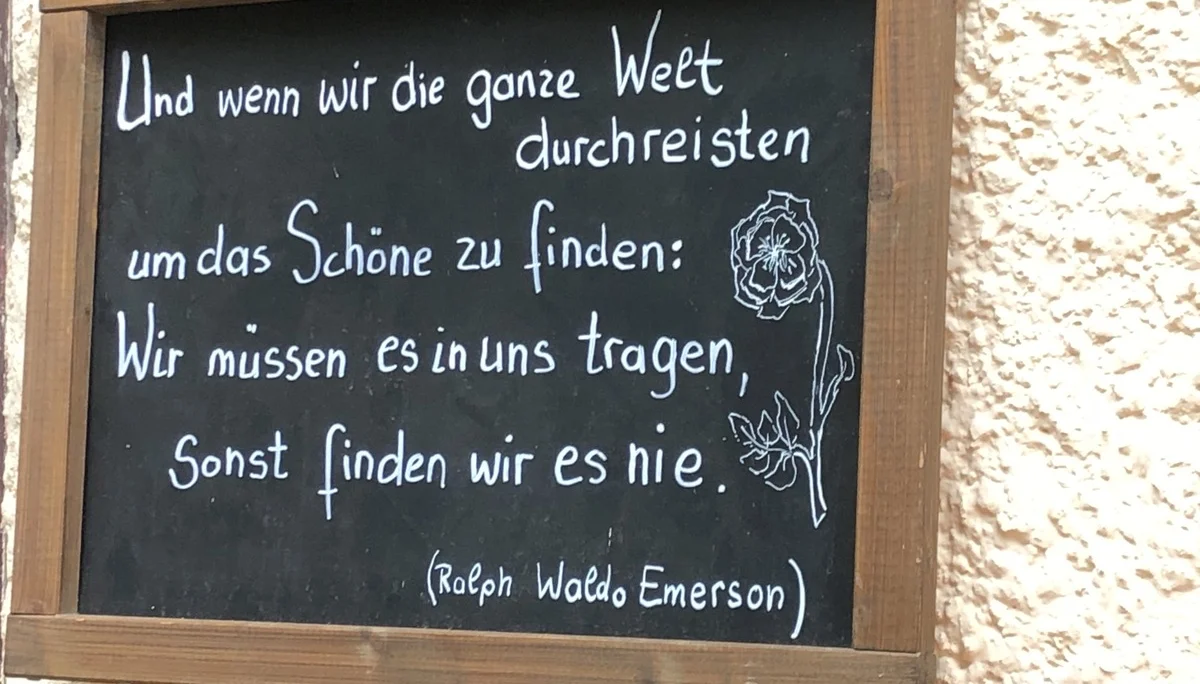 Und wenn wir die ganze Welt
durchreisten
um das Schöne zu finden:
Wir müssen es in uns tragen,
Sonst finden wir es nie.
(Ralph Waldo Emerson)